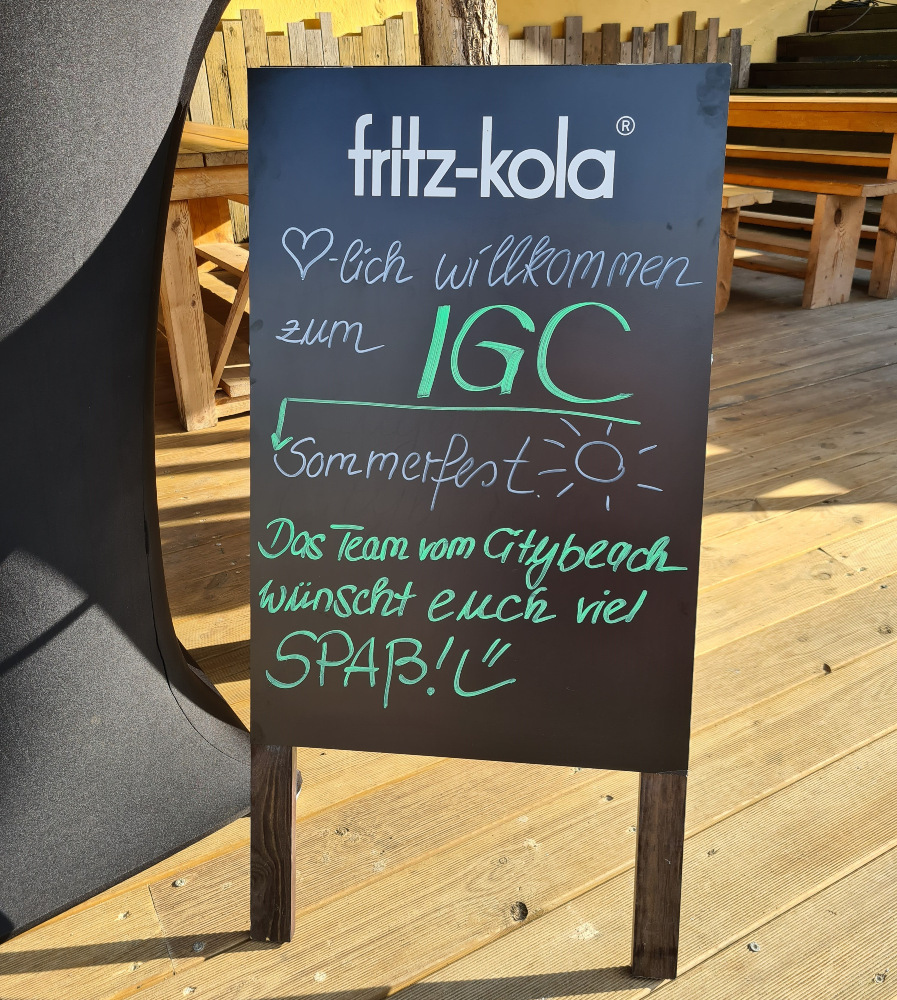 fritz-kola®
♡-lich willkommen
zum IGC
Sommerfest.
Das Team vom Citybeach
wünscht euch viel
SPAß!